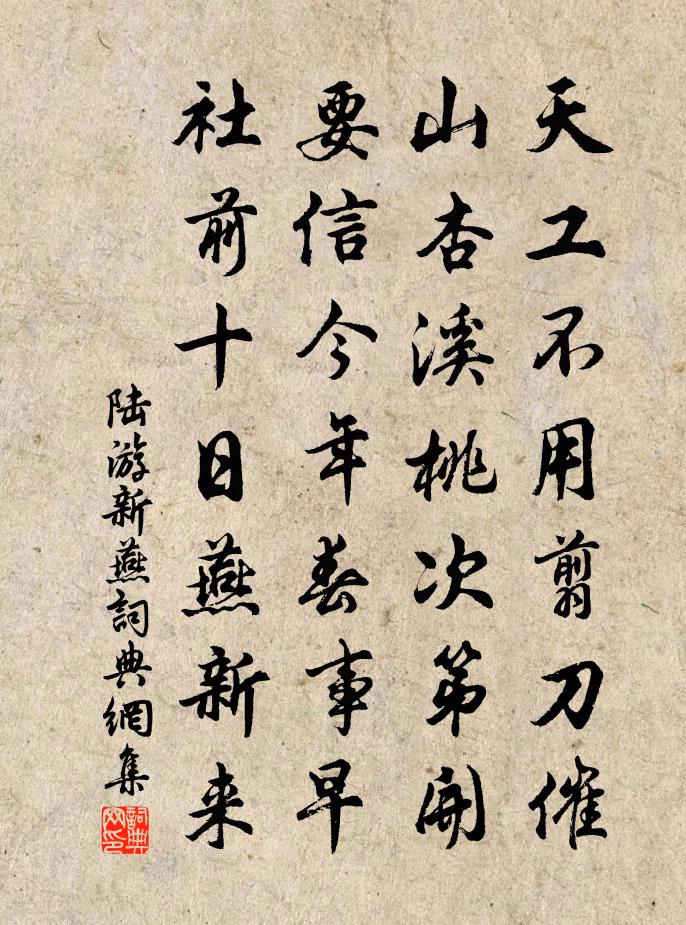 天工不用翦刀催
山杏溪桃次第開
要信今年春事早
社前十日燕新来
陆游新燕詞典網集
詞典网印